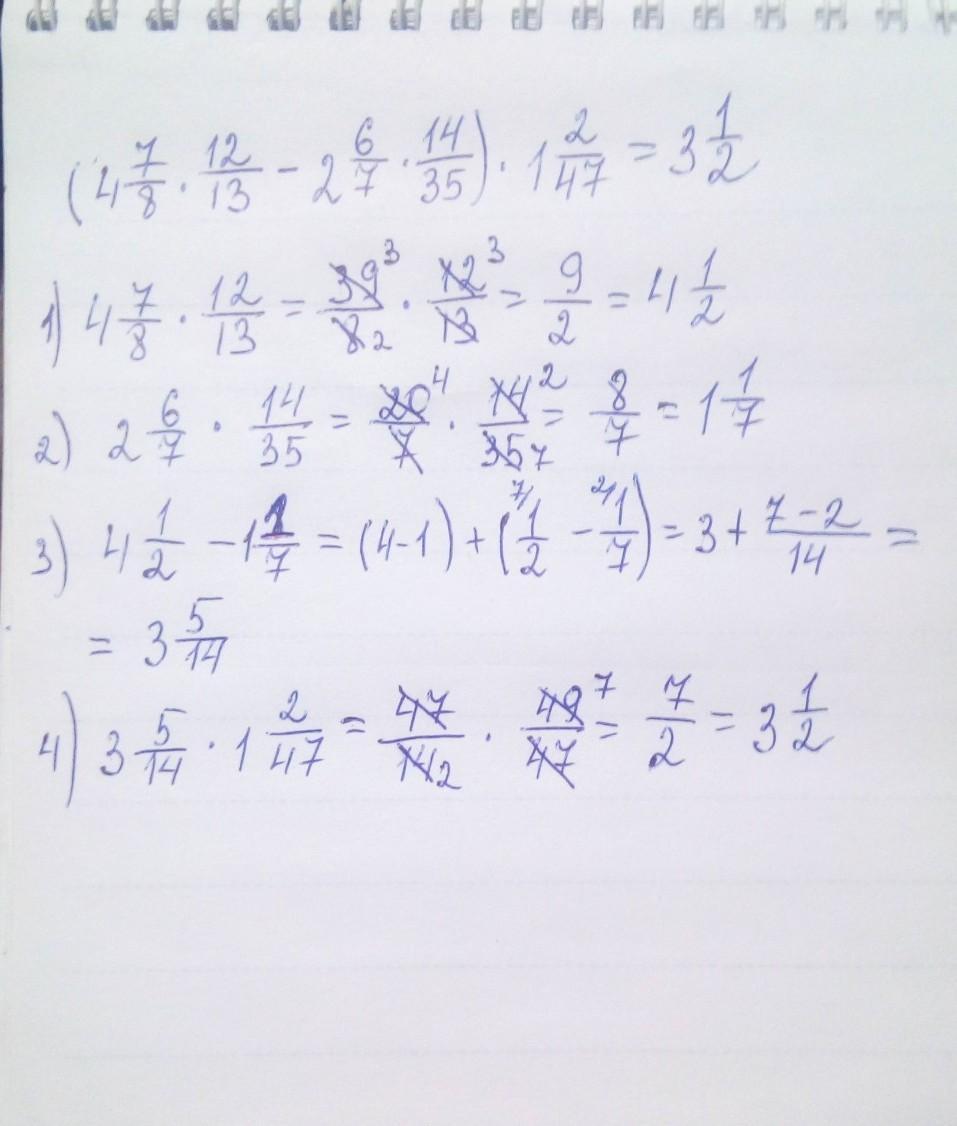 (4 7/8 · 12/13 - 2 6/7 · 14/35) · 1 2/47 = 3 1/2
1) 4 7/8 · 12/13 = 39 3/8 2 · 12 3/13 = 9/2 = 4 1/2
2) 2 6/7 · 14/35 = 20 4/7 · 14 2/35 7 = 8/7 = 1 1/7
3) 4 1/2 - 1 1/7 = (4-1) + (7/ 1/2 - 2/ 1/7) = 3 + 7-2/14 =
= 3 5/14
4) 3 5/14 · 1 2/47 = 47/14 2 · 49 7/47 = 7/2 = 3 1/2